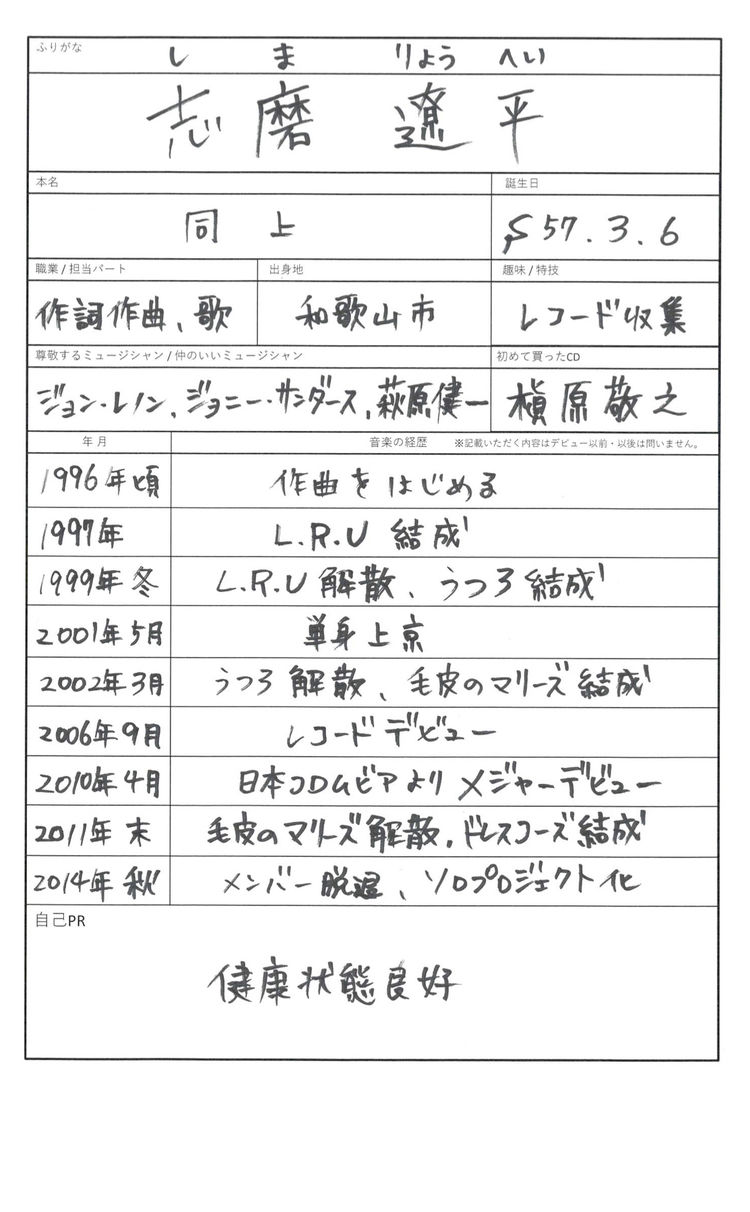 ふりがな
し ま りょう へい
志磨 遼平
本名
誕生日
同上
S57.3.6
職業/担当パート
出身地
趣味/特技
作詞作曲、歌
和歌山市
レコード収集
尊敬するミュージシャン/仲のいいミュージシャン
初めて買ったCD
ジョン・レノン、ジョニー・サンダース、萩原健一
槇原敬之
年月
音楽の経歴 ※記載いただく内容はデビュー以前・以後は問いません。
1996年頃 作曲をはじめる
1997年 L.R.U 結成
1999年冬 L.R.U 解散、うつろ結成
2001年5月 単身上京
2002年3月 うつろ解散、毛皮のマリーズ結成
2006年9月 レコードデビュー
2010年4月 日本コロムビアよりメジャーデビュー
2011年末 毛皮のマリーズ解散、ドレスコーズ結成
2014年秋 メンバー脱退、ソロプロジェクト化
自己PR
健康状態良好